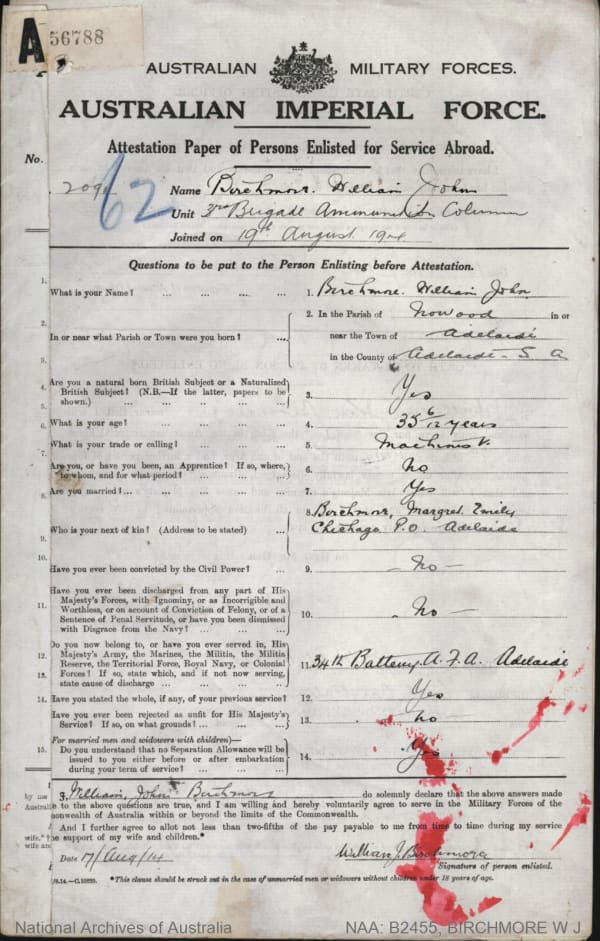 A 56788
AUSTRALIAN MILITARY FORCES.
AUSTRALIAN IMPERIAL FORCE.
Attestation Paper of Persons Enlisted for Service Abroad.
No.
62
Name Birchmore. William John
Unit 3rd Brigade Ammunition Column
Joined on 19th August 1914
Questions to be put to the Person Enlisting before Attestation.
1. What is your Name? ... ... ... 1. Birchmore. William John
2. In or near what Parish or Town were you born? ... 2. In the Parish of Nowood in or
near the Town of Adelaide
in the County of Adelaide - S A
3.
4. Are you a natural born British Subject or a Naturalized
British Subject? (N.B.—If the latter, papers to be
shown.) ... ... ... ... 3. Yes
6. What is your age? ... ... ... ... 4. 35 6/12 years
7. What is your trade or calling? ... ... ... 5. Machinist
Are you, or have you been, an Apprentice? If so, where,
to whom, and for what period? ... ... 6. No
8. Are you married? ... ... ... ... 7. Yes
9. Who is your next of kin? (Address to be stated) ... 8. Birchmore, Margret Emily
Chichago P.O. Adelaide
10. Have you ever been convicted by the Civil Power? ... 9. - No -
11. Have you ever been discharged from any part of His
Majesty's Forces, with Ignominy, or as Incorrigible and
Worthless, or on account of Conviction of Felony, or of a
Sentence of Penal Servitude, or have you been dismissed
with Disgrace from the Navy? ... ... ... 10. - No -
12. Do you now belong to, or have you ever served in, His
Majesty's Army, the Marines, the Militia, the Militia
Reserve, the Territorial Force, Royal Navy, or Colonial
13. Forces? If so, state which, and if not now serving,
state cause of discharge ... ... ... 11. 34th Battery A.F.A. Adelaide
14. Have you stated the whole, if any, of your previous service? 12. Yes
Have you ever been rejected as unfit for His Majesty's
Service? If so, on what grounds? ... ... 13. No
15. For married men and widowers with children—
Do you understand that no Separation Allowance will be
issued to you either before or after embarkation
during your term of service? ... ... ... 14. Yes
I, William John Birchmore do solemnly declare that the above answers made
by me
Australia to the above questions are true, and I am willing and hereby voluntarily agree to serve in the Military Forces of the
onwealth of Australia within or beyond the limits of the Commonwealth.
And I further agree to allot not less than two-fifths of the pay payable to me from time to time during my service
wife.* the support of my wife and children.*
wife and
Date 17/Aug/14 William J. Birchmore
Signature of person enlisted.
*This clause should be struck out in the case of unmarried men or widowers without children under 18 years of age.
National Archives of Australia NAA: B2455, BIRCHMORE W J